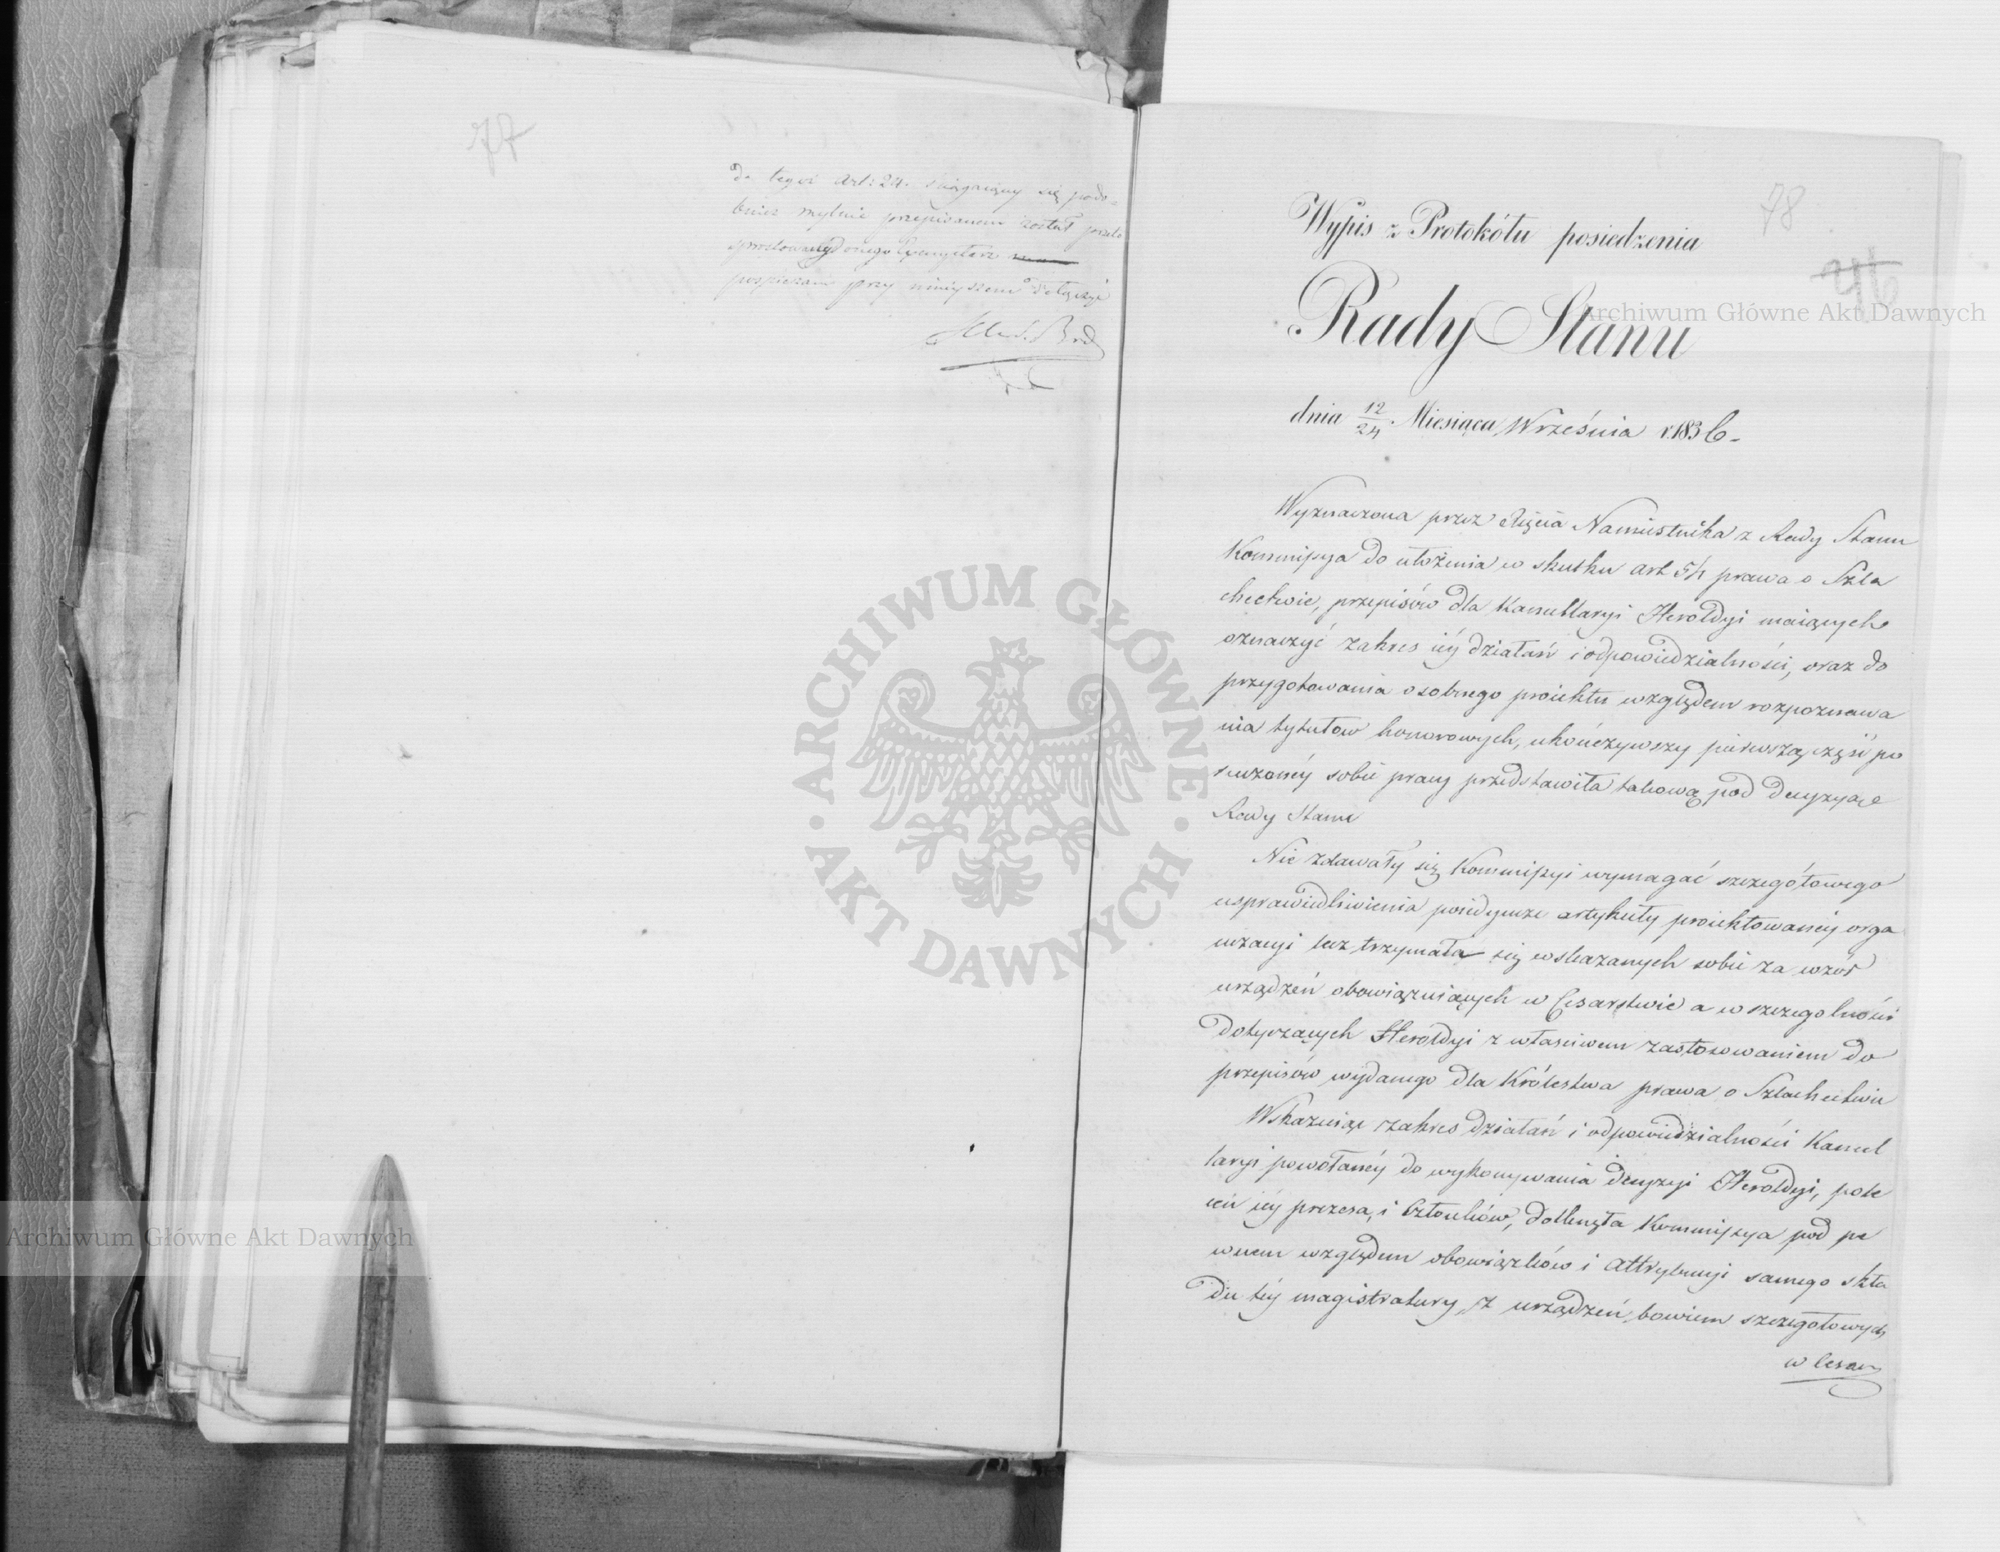 77
do tegoż Art: 24. ściągający się podo-
bnież mylnie przepisanem został przeto
sprostowany
pospieszam przy niniejszem dołączyć
78
Wypis z Protokółu posiedzenia
Rady Stanu
dnia 12/24 Miesiąca Września r. 1836.
Wyznaczona przez Xięcia Namiestnika z Rady Stanu
Kommissya do ułożenia w skutku art 54 prawa o Szla
chectwie, przepisów dla Kancellaryi Heroldyi maiących
oznaczyć zakres iéy działań i odpowiedzialności, oraz do
przygotowania osobnego proiektu względem rozpoznawa
nia tytułów honorowych, ukończywszy pierwszą część po
ruczonéy sobie pracy przedstawiła takową pod decyzyę
Rady Stanu
Nie zdawały się Kommissyi wymagać szczegółowego
usprawiedliwienia poiedyncze artykuły proiektowanéy orga
nizacyi lecz trzymała się wskazanych sobie za wzór
urządzeń obowiązuiących w Cesarstwie a w szczególności
dotyczących Heroldyi z właściwem zastosowaniem do
przepisów wydanego dla Królestwa prawa o Szlachectwie
Wskazuiąc zakres działań i odpowiedzialności Kancel
laryi powołanéy do wykonywania decyzyi Heroldyi, pole
ceń iéy prezesa, i Członków, dotknęła Kommissya pod pe
wnem względem obowiązków i attrybucyi samego skła
du téy magistratury, z urządzeń bowiem szczegółowych
w Cesar
Archiwum Główne Akt Dawnych
Archiwum Główne Akt Dawnych
ARCHIWUM GŁÓWNE · AKT DAWNYCH ·